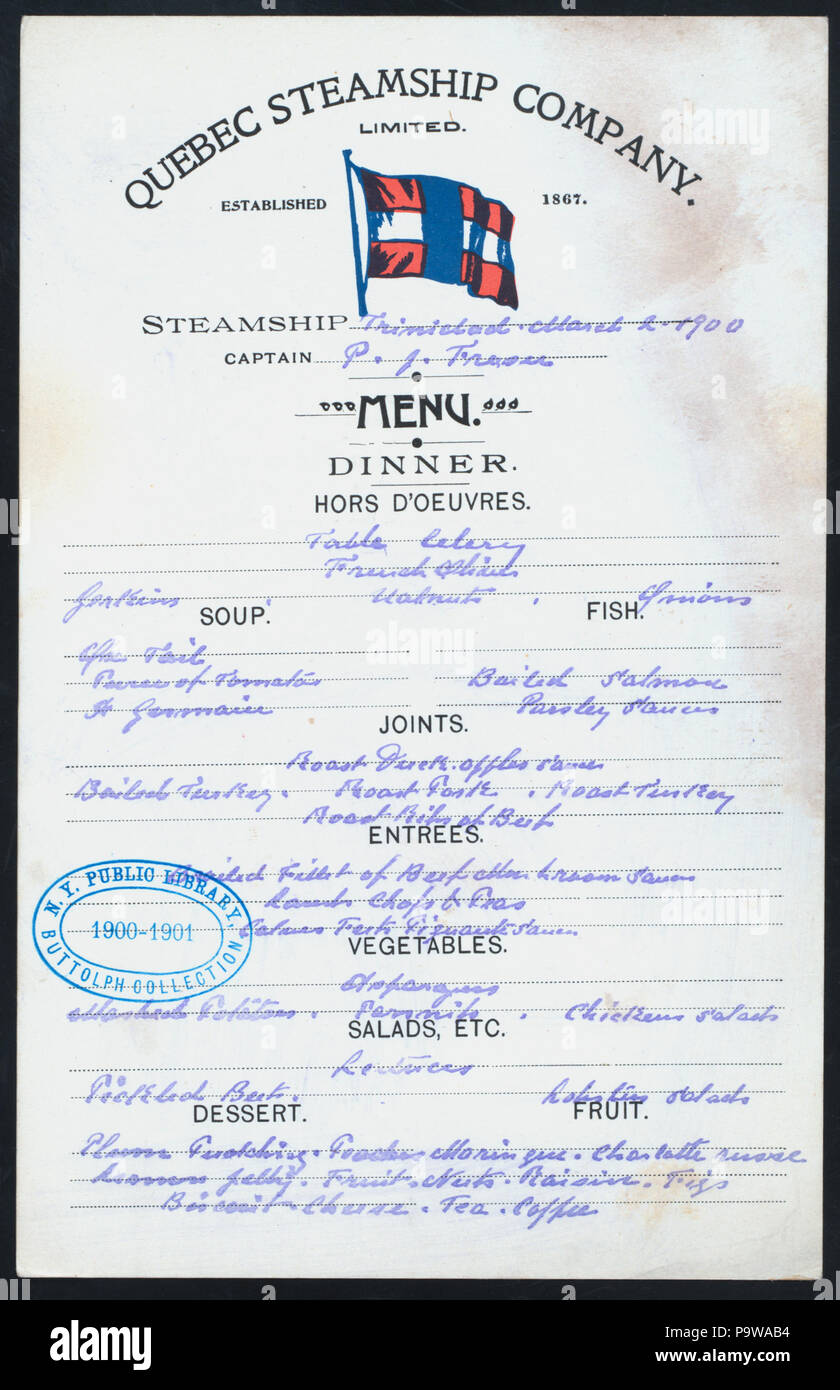 QUEBEC STEAMSHIP COMPANY.
LIMITED.
ESTABLISHED 1867.
STEAMSHIP Trinidad. March 2. 1900
CAPTAIN P. J.
MENU.
DINNER.
HORS D'OEUVRES.
Table Celery
French Olives
Gerkins . Walnuts . Onions
SOUP. FISH.
Ox Tail
Puree of Tomatos Boiled Salmon
St Germain Parsley Sauces
JOINTS.
Roast Duck. apples sauce
Boiled Turkey. Roast Pork . Roast Turkey
Roast Ribs of Beef
ENTREES.
Fillet of Beef Mushroom Sauce
Lamb Chops & Peas
Calves Feet Piquante Sauce
VEGETABLES.
Aspargus
Mashed Potatoes . Parsnips . Chickens Salads
SALADS, ETC.
Lectuces
Pickled Beets. Lobsters Salads
DESSERT. FRUIT.
Plum Pudding. Maringue. Charlotte russe
Lemon Jelly. Fruit. Nuts. Raisin. Figs
Biscuit. Cheese. Tea. Coffee
N. Y. PUBLIC LIBRARY,
1900-1901
BUTTOLPH COLLECTION
alamy
alamy
alamy
alamy
alamy
Image ID: P9WAB4
www.alamy.com